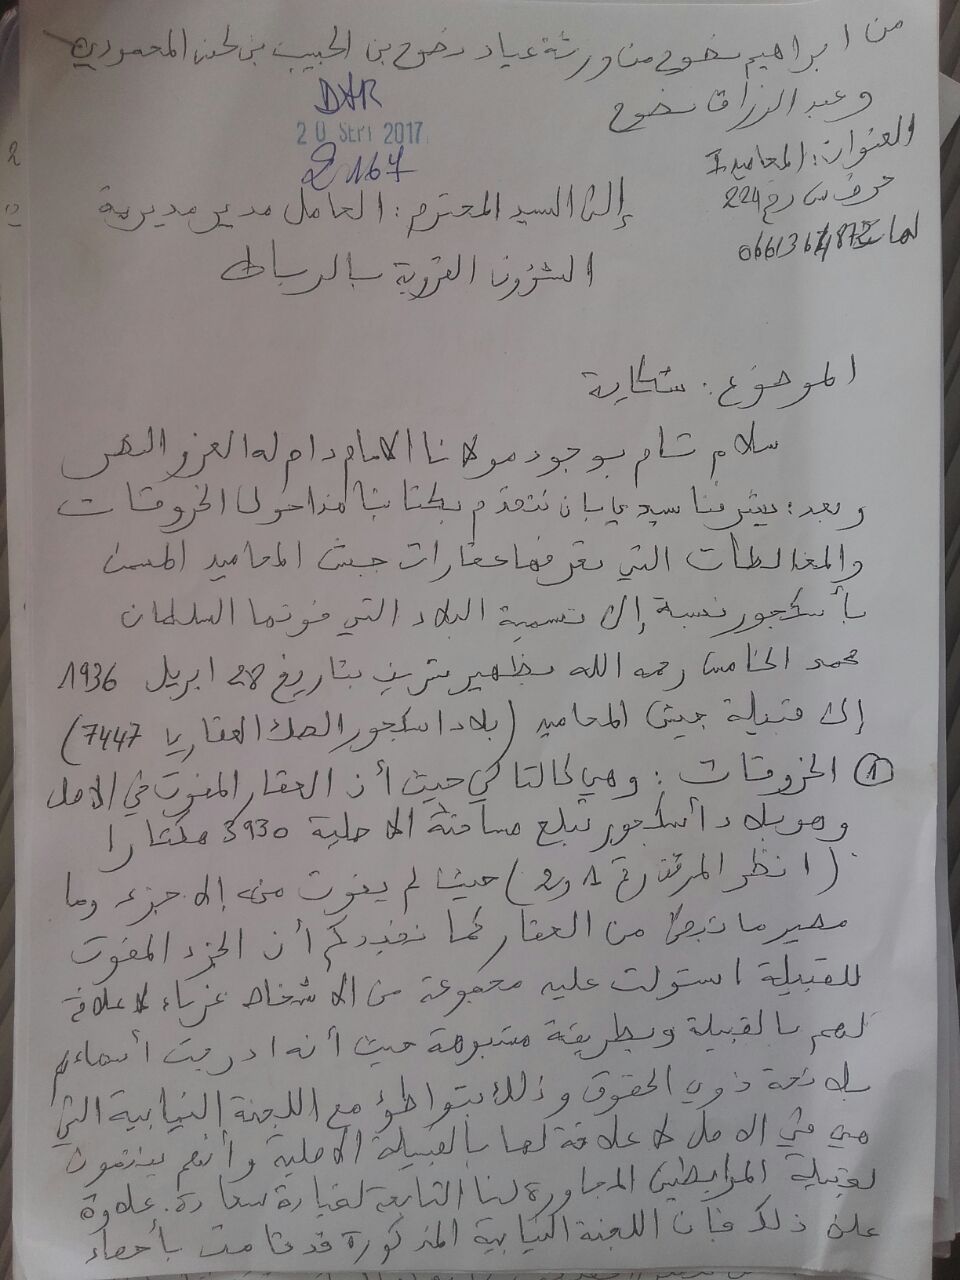 من ابراهيم نضوح من ورثة عياد نضوح بن الحبيب بن لحسن المحمودي
و عبد الرزاق نضوح
DAR
20 SEPT 2017
2167
العنوان: المحاميد I
حرف س رقم 224
إلى السيد المحترم: العامل مدير مديرية
الشؤون القروية بالرباط
الموضوع: شكاية
سلام تام بوجود مولانا الامام دام له العز والنصر
وبعد: يشرفنا سيدي بان نتقدم بكتابنا هذا حول الخروقات
والمغالطات التي تعرفها عقارات جيش المحاميد المسمى
بأسكجور نسبة إلى تسمية البلاد التي فوتها السلطان
محمد الخامس رحمه الله بظهير شريف بتاريخ 28 ابريل 1936
إلى قبيلة جيش المحاميد (بلاد اسكجور الصك العقاري 7447)
① الخروقات: وهي كالتالي حيث أن العقار المفوت في الاصل
وهو بلاد أسكجور تبلغ مساحته الاصلية 3930 هكتارا
(انظر المرفق رقم 1 و2) حيث لم يفوت منه إلا جزء وما
مصير ما تبقى من العقار كما نفيدكم أن الجزء المفوت
للقبيلة استولت عليه مجموعة من الاشخاص غرباء لا علاقة
لهم بالقبيلة وبطريقة مشبوهة حيث أنه ادرجت أسماءهم
بلائحة ذوي الحقوق وذلك بتواطؤ مع اللجنة النيابية التي
هي في الاصل لا علاقة لها بالقبيلة الاصلية وأنهم ينتمون
لقبيلة المرابطين المجاورة لنا التابعة لقيادة سعادة. علاوة
على ذلك فان اللجنة النيابية المذكورة قد قامت بأحصاء